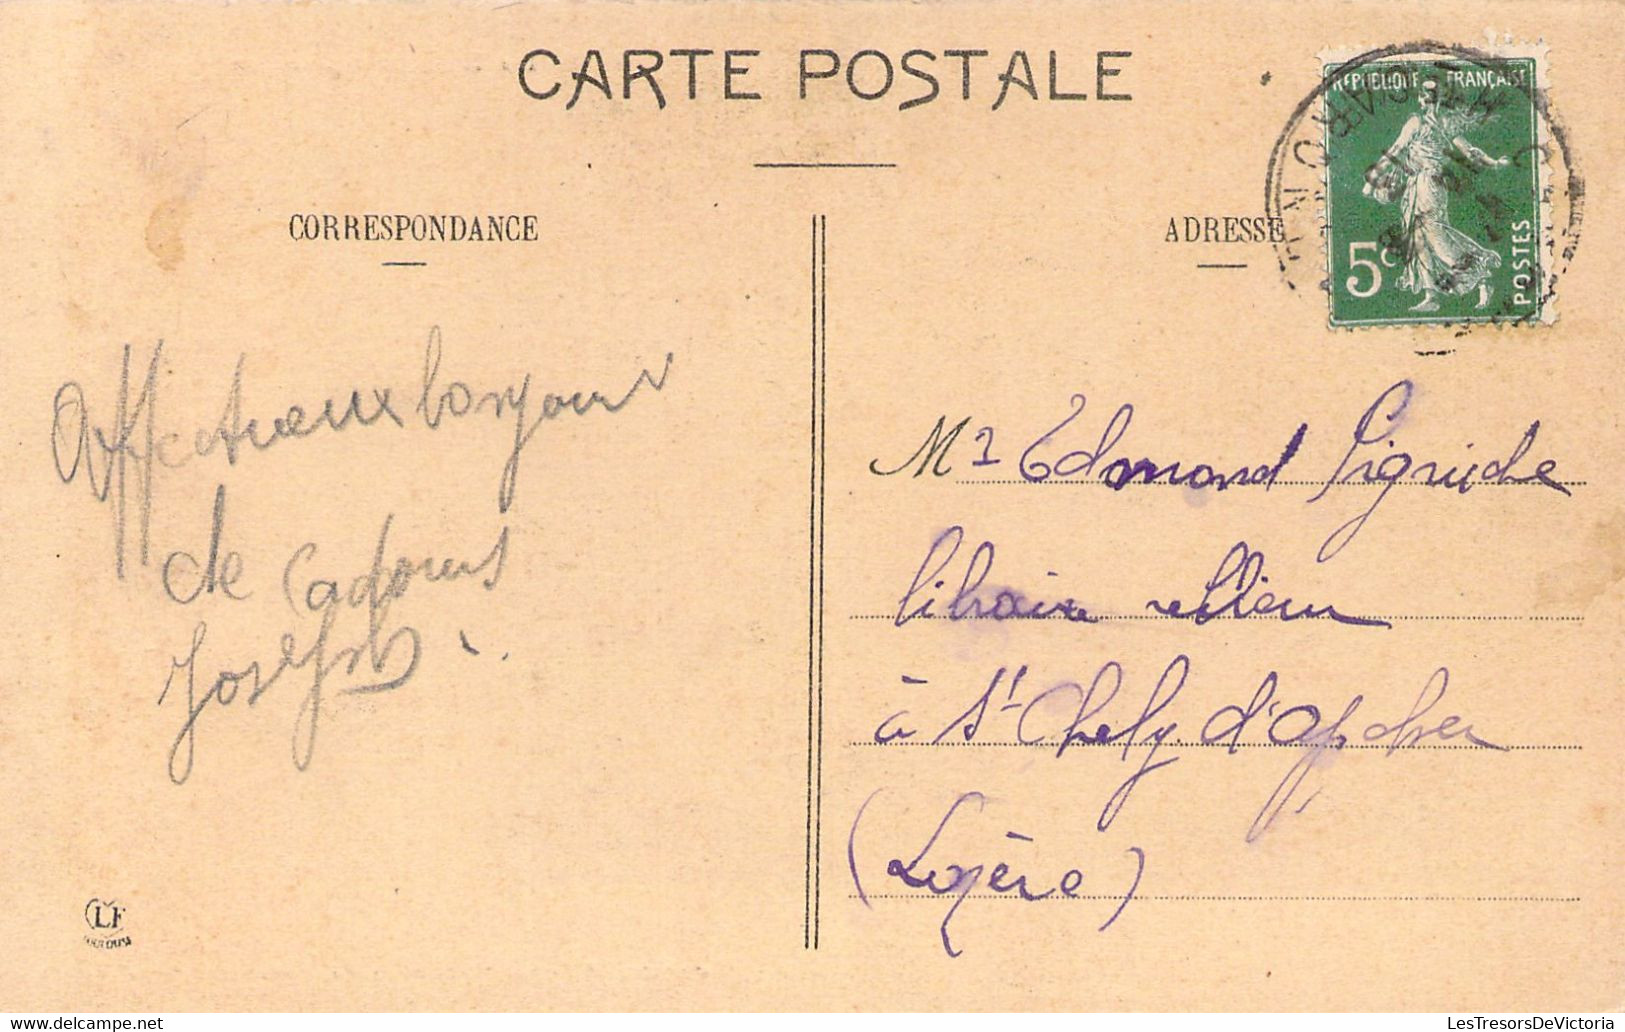 CARTE POSTALE
CORRESPONDANCE
ADRESSE
REPUBLIQUE FRANÇAISE
5c
POSTES
Affectueux bonjour
de Cadours
Joseph
Mr Edmond
libraire relieur
à St Chely d'Apcher
(Lozère)
LF
TOULOUSE
www.delcampe.net
LesTresorsDeVictoria